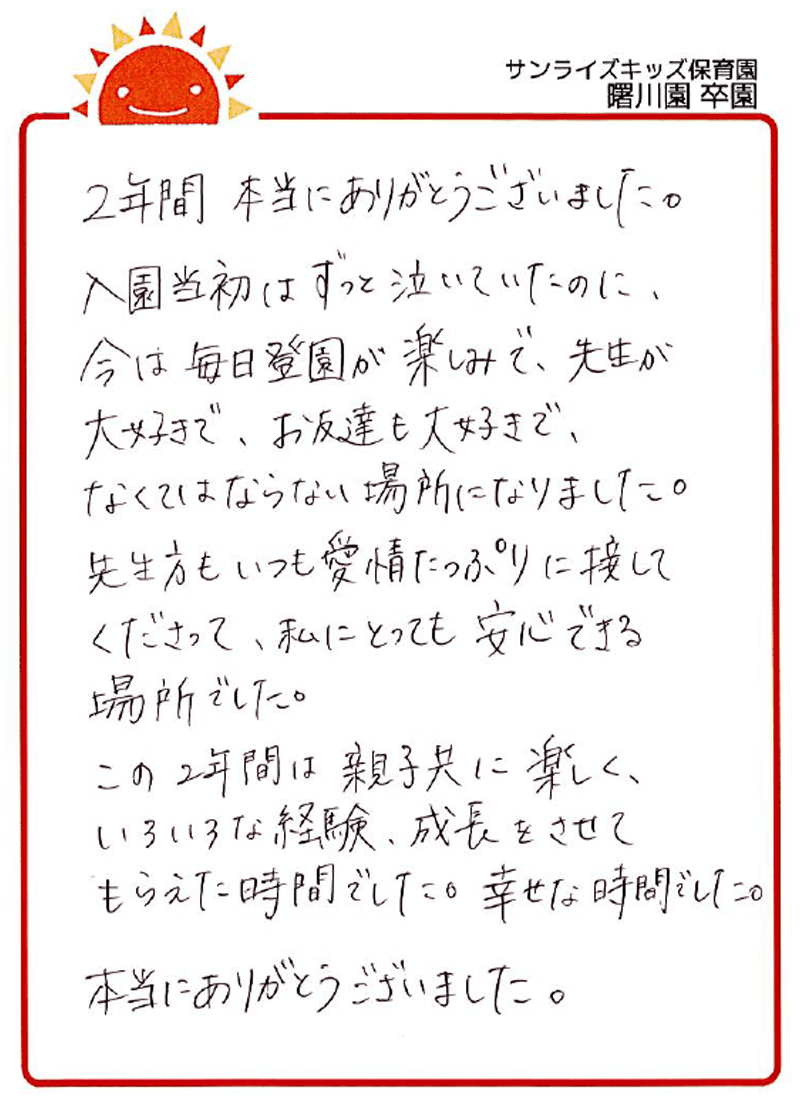 サンライズキッズ保育園
曙川園 卒園
2年間 本当にありがとうございました。
入園当初はずっと泣いていたのに、
今は毎日登園が楽しみで、先生が
大好きで、お友達も大好きで、
なくてはならない場所になりました。
先生方もいつも愛情たっぷりに接して
くださって、私にとっても安心できる
場所でした。
この2年間は親子共に楽しく、
いろいろな経験、成長をさせて
もらえた時間でした。幸せな時間でした。
本当にありがとうございました。